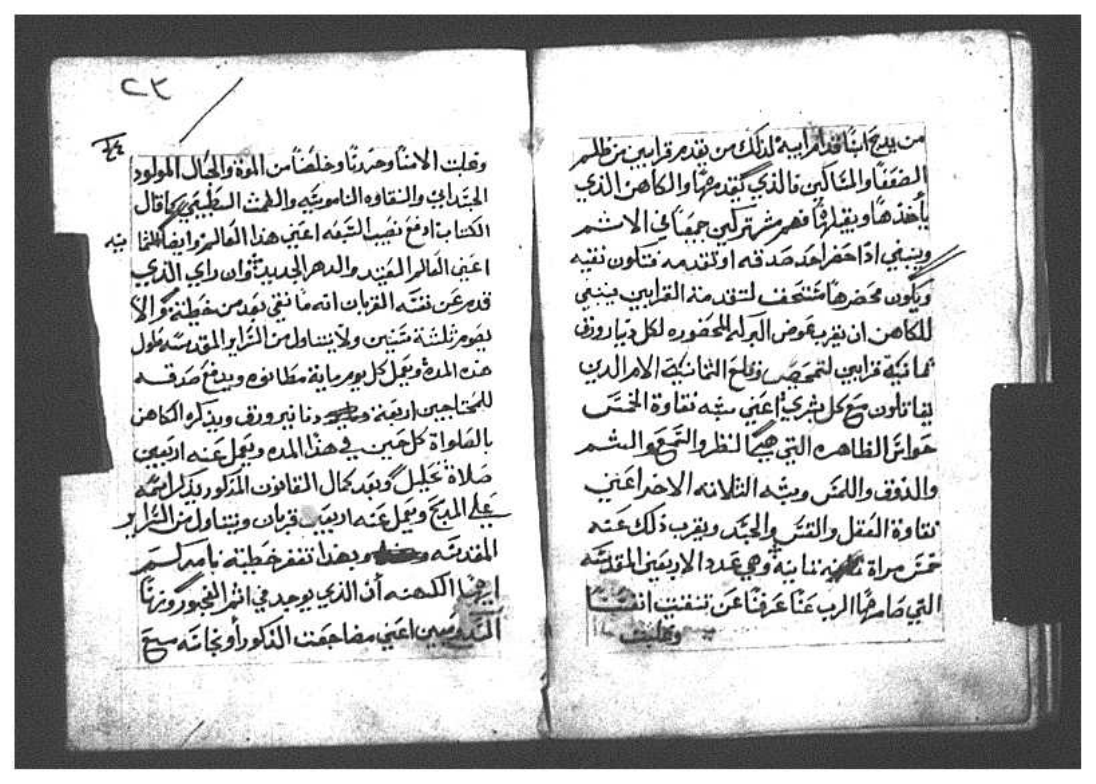 من يذبح ابنًا قدام ابيه لذلك من يقدم قرابين من ظلم
الضعفا والمساكين فالذي يقدمها والكاهن الذي
يأخذها ويقبلها فهم مشتركين جميعًا في الاثم
وينبغي اذا حضر احد صدقه او تقدمه فتكون نقيه
ويكون محضرها مستحق لتقدمة القرابين ينبغي
للكاهن ان يقرب عوض البركه المحضوره لكل دينار ورق
ثمانية قرابين لتمحص وقلع الثمانية الامر الذين
يقاتلون مع كل بشري اعني بثه نقاوة الخمس
حواس الظاهره التي هي النظر والسمع والشم
والذوق واللمس وبثه الثلاثه الاخر اعني
نقاوة العقل والنفس والجسد ويقرب ذلك عنه
خمس مراة ثمانيه وهي عدد الاربعين المقدسه
التي صامها الرب عنا عرفنا عن تنقيت انفسنا
وتقلبت
٢٣
وتقلبت الامنا وحررنا وخلصنا من الموة والحال المولود
الجسداني والنقاوه الناموسيه والطمث الطبيعي كما قال
الكتاب ادفع نصيب السبعه اعني هذا العالم وايضا للثمانيه
اعني العالم العتيد والدهر الجديد وان راي الذي
قدم عن نفسه القربان انه ما نقي بعد من خطيته والا
يصوم ثلثة سنين ولا يتناول من السراير المقدسه طول
هذه المدة ويعمل كل يوم ماية مطانوه ويدفع صدقه
للمحتاجين اربعة دنانير ورق ويذكره الكاهن
بالصلواة كل حين في هذا المده ويعمل عنه اربعين
صلاة تحليل وبعد كمال القانون المذكور يذكر اسمه
علي المذبح ويعمل عنه اربعين قربان ويتناول من السراير
المقدسه وبهذا تغفر خطيته نامركم
ايها الكهنه ان الذي يوجد في اثم الفجور وزنا
السدوميين اعني مضاجعت الذكور او نجاسه مع